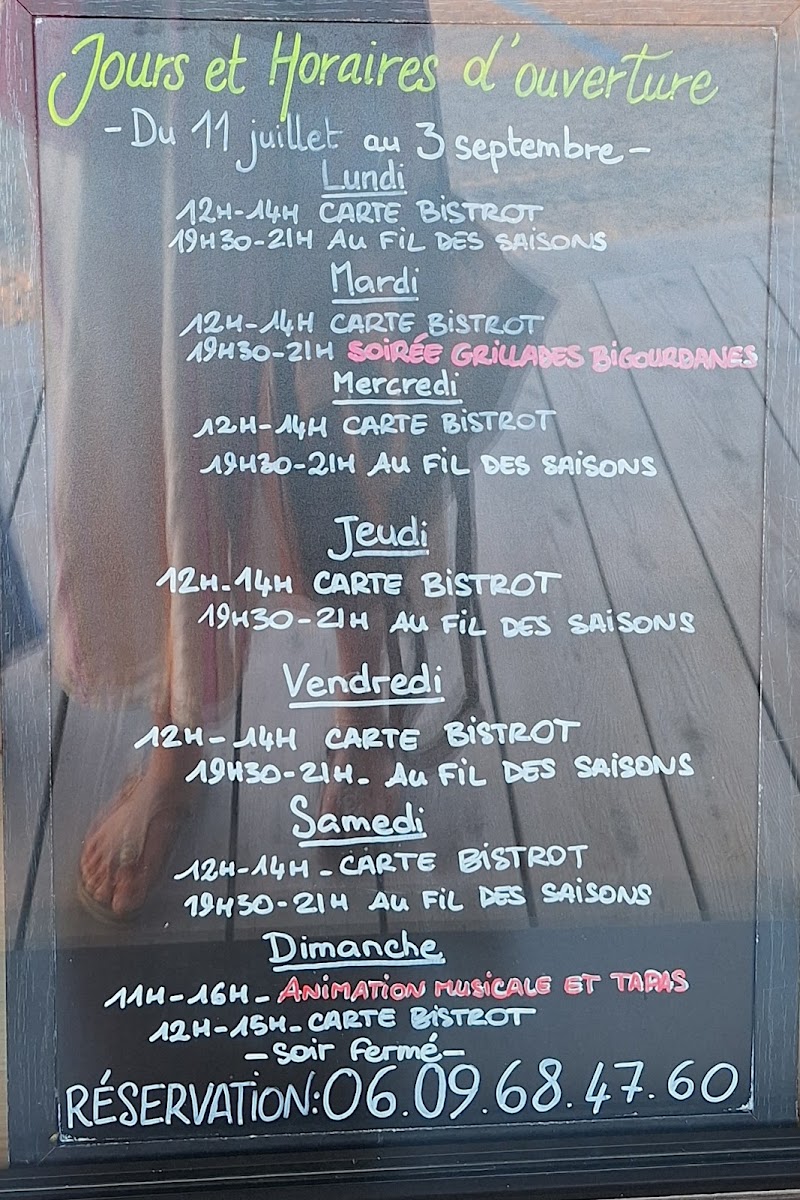 Jours et Horaires d'ouverture
-Du 11 juillet au 3 septembre-
Lundi
12H-14H CARTE BISTROT
19H30-21H AU FIL DES SAISONS
Mardi
12H-14H CARTE BISTROT
19H30-21H SOIRÉE GRILLADES BIGOURDANES
Mercredi
12H-14H CARTE BISTROT
19H30-21H AU FIL DES SAISONS
Jeudi
12H-14H CARTE BISTROT
19H30-21H AU FIL DES SAISONS
Vendredi
12H-14H CARTE BISTROT
19H30-21H- AU FIL DES SAISONS
Samedi
12H-14H-CARTE BISTROT
19H30-21H AU FIL DES SAISONS
Dimanche
11H-16H-ANIMATION MUSICALE ET TAPAS
12H-15H-CARTE BISTROT
-Soir fermé-
RÉSERVATION:06.09.68.47.60